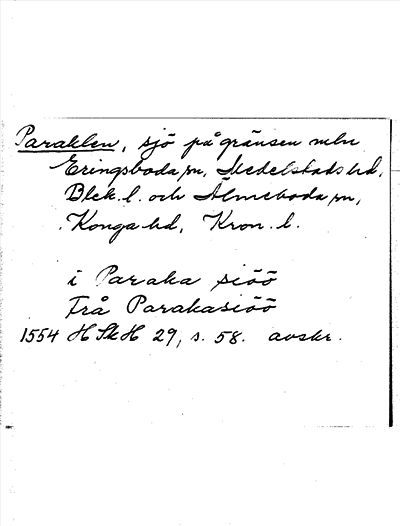 Paraklen, sjö på gränsen mln
Eringsboda sn, Medelstads hd,
Blek. l. och Älmeboda sn,
Konga hd, Kron. l.
i Paraka siöö
Frå Parakasiöö
1554 HSkH 29, s. 58. avskr.